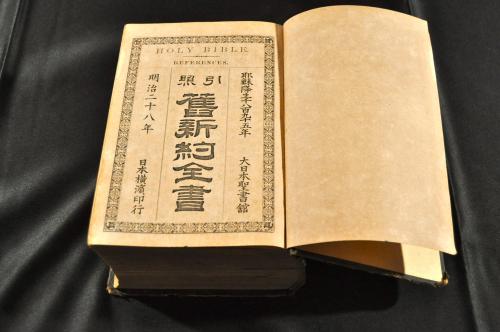 HOLY BIBLE
REFERENCES.
耶穌降生千八百九十五年
大日本聖書舘
引照
舊新約全書
明治二十八年
日本橫濱印行